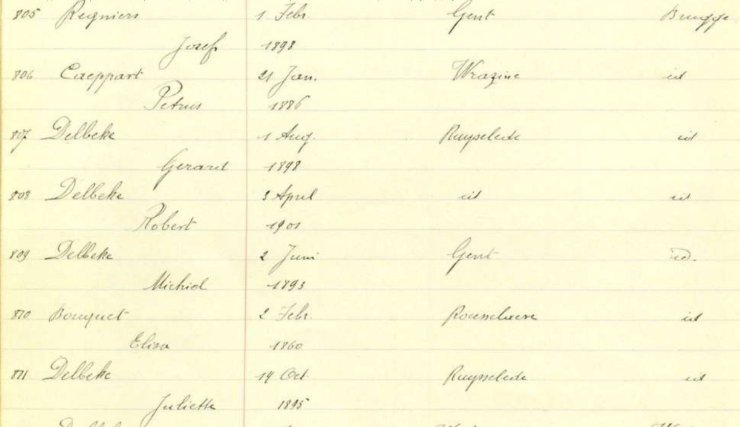 805 Regniers 1 Febr Gent Brugge
Josef 1898
806 Caeppart 21 Jan. Wrazine id
Petrus 1886
807 Delbeke 1 Aug. Ruysselede id
Gerard 1898
808 Delbeke 3 April id id
Robert 1901
809 Delbeke 2 Juni Gent id.
Michiel 1893
810 Bouquet 2 Febr. Rousselaere id
Elisa 1860
811 Delbeke 14 Oct Ruysselede id
Juliette 1895